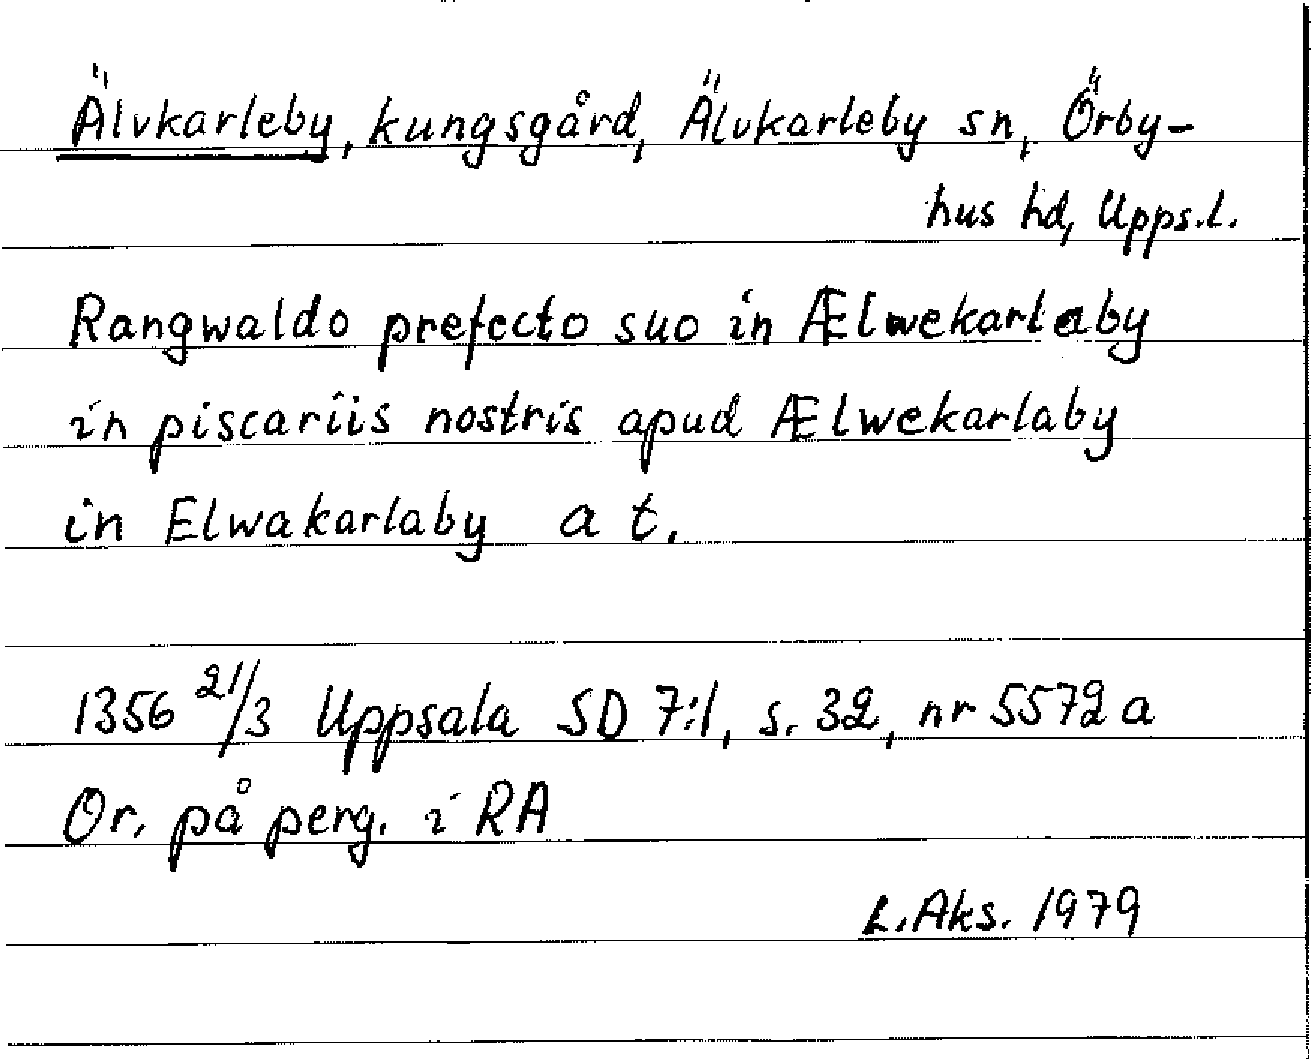 Älvkarleby, kungsgård, Älvkarleby sn, Örby-
hus hd, Upps.l.
Rangwaldo prefecto suo in Ælwekarlaby
in piscariis nostris apud Ælwekarlaby
in Elwakarlaby a t.
1356 21/3 Uppsala SD 7:1, s. 32, nr 5572 a
Or. på perg. i RA
L. Aks. 1979